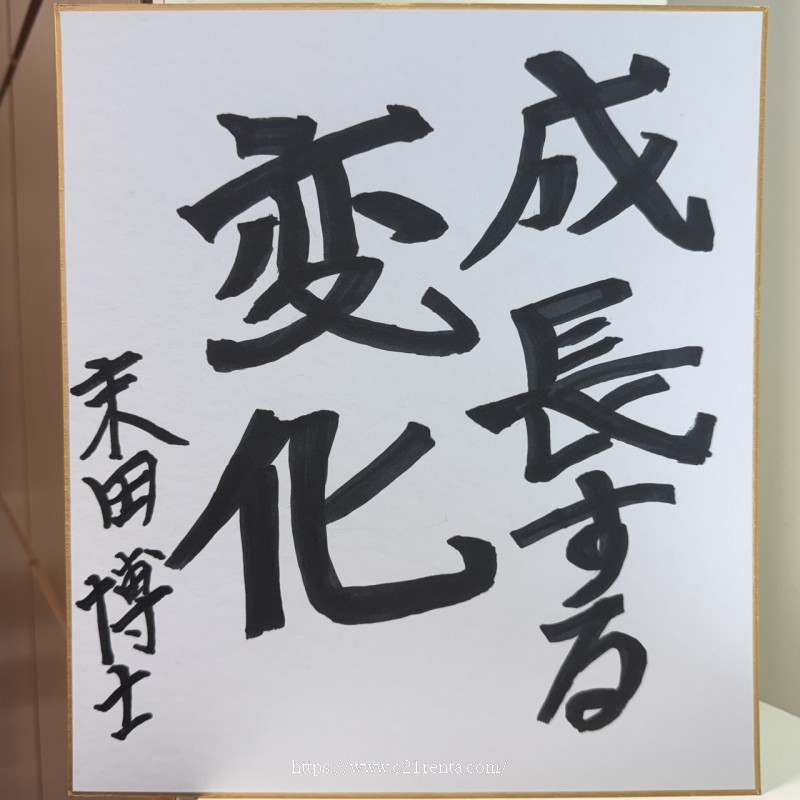 成長する
変化
末田博士
https://www.c21renta.com/